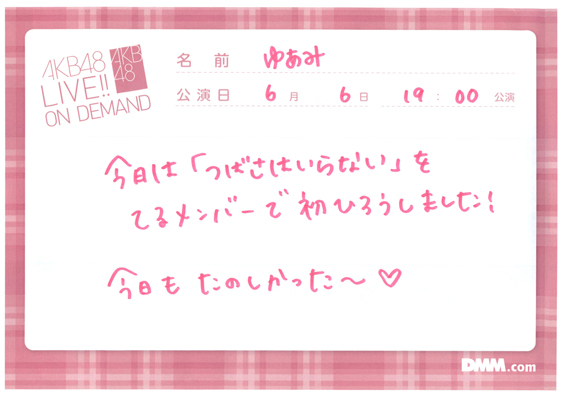 AKB48
LIVE!!
ON DEMAND
AKB
48
名前 ゆあみ
公演日 6月 6日 19:00 公演
今日は「つばさはいらない」を
てるメンバーで初ひろうしました!
今日も たのしかった〜♡
DMM.com